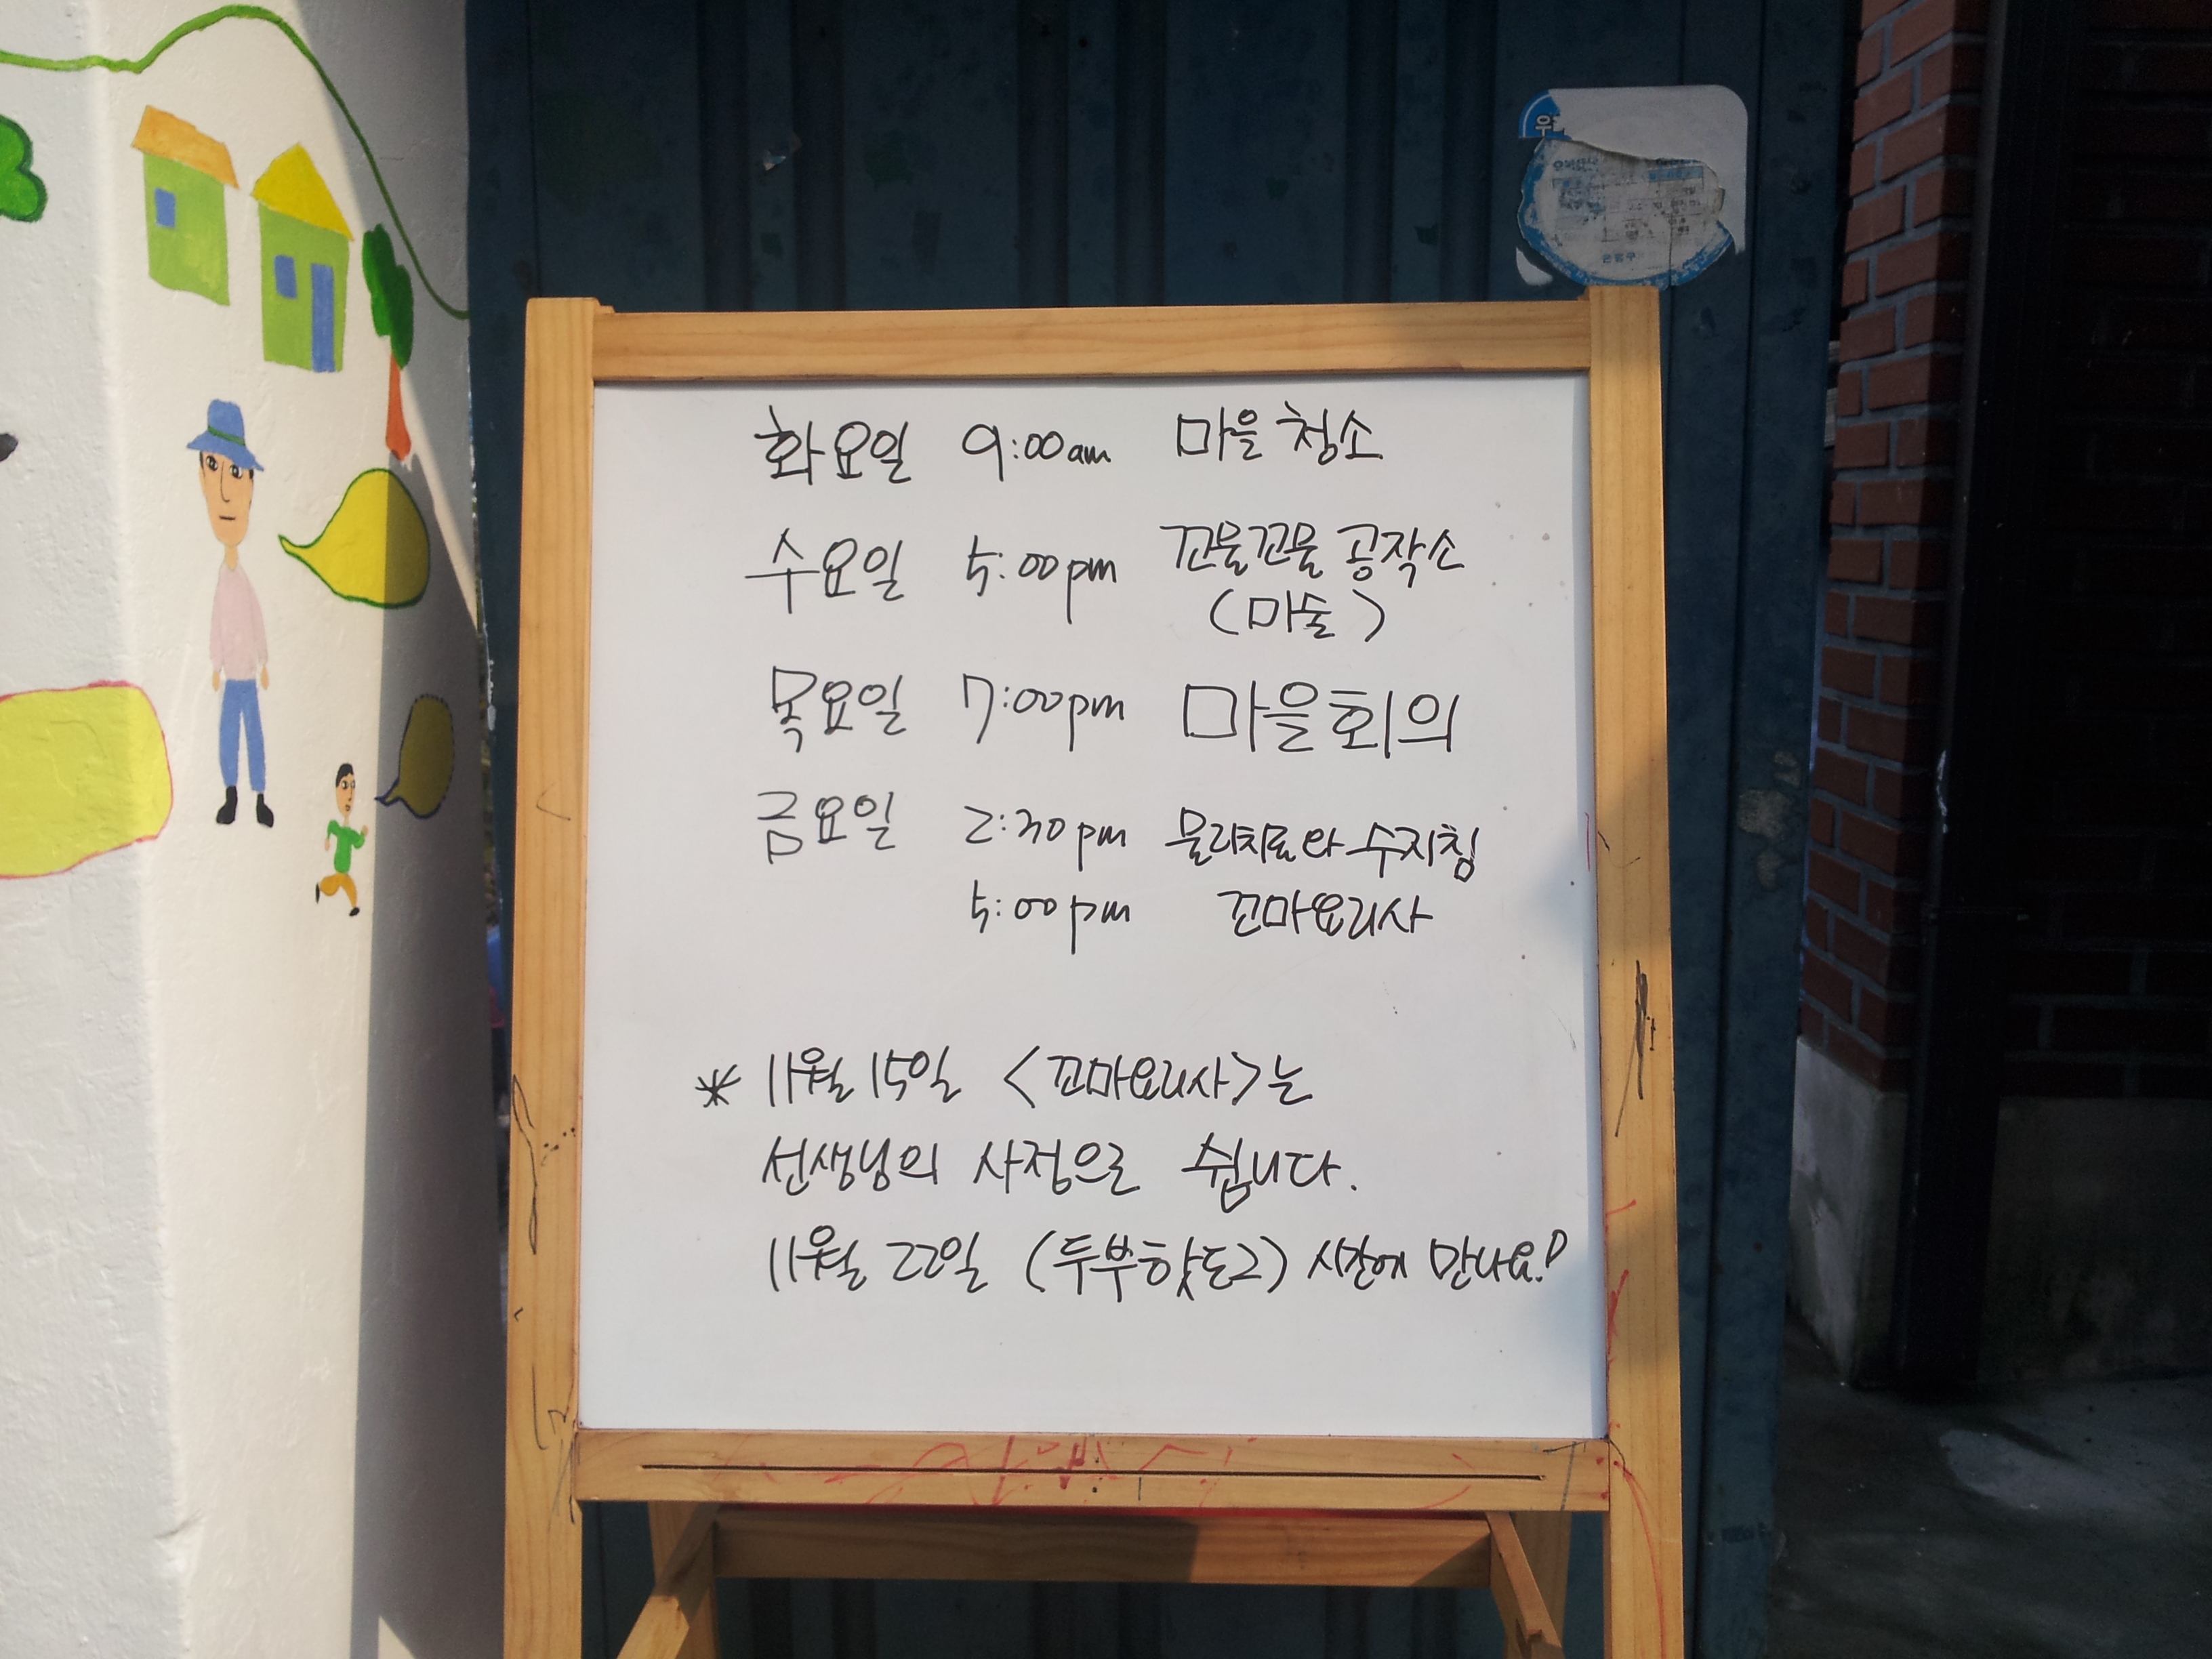 화요일 9:00am 마을 청소
수요일 5:00pm 꼬물꼬물 공작소
(마술)
목요일 7:00pm 마을회의
금요일 2:30pm 물리치료와 수지침
5:00pm 꼬마요리사
* 11월 15일 <꼬마요리사>는
선생님의 사정으로 쉽니다.
11월 22일 (두부핫도그) 시간에 만나요!